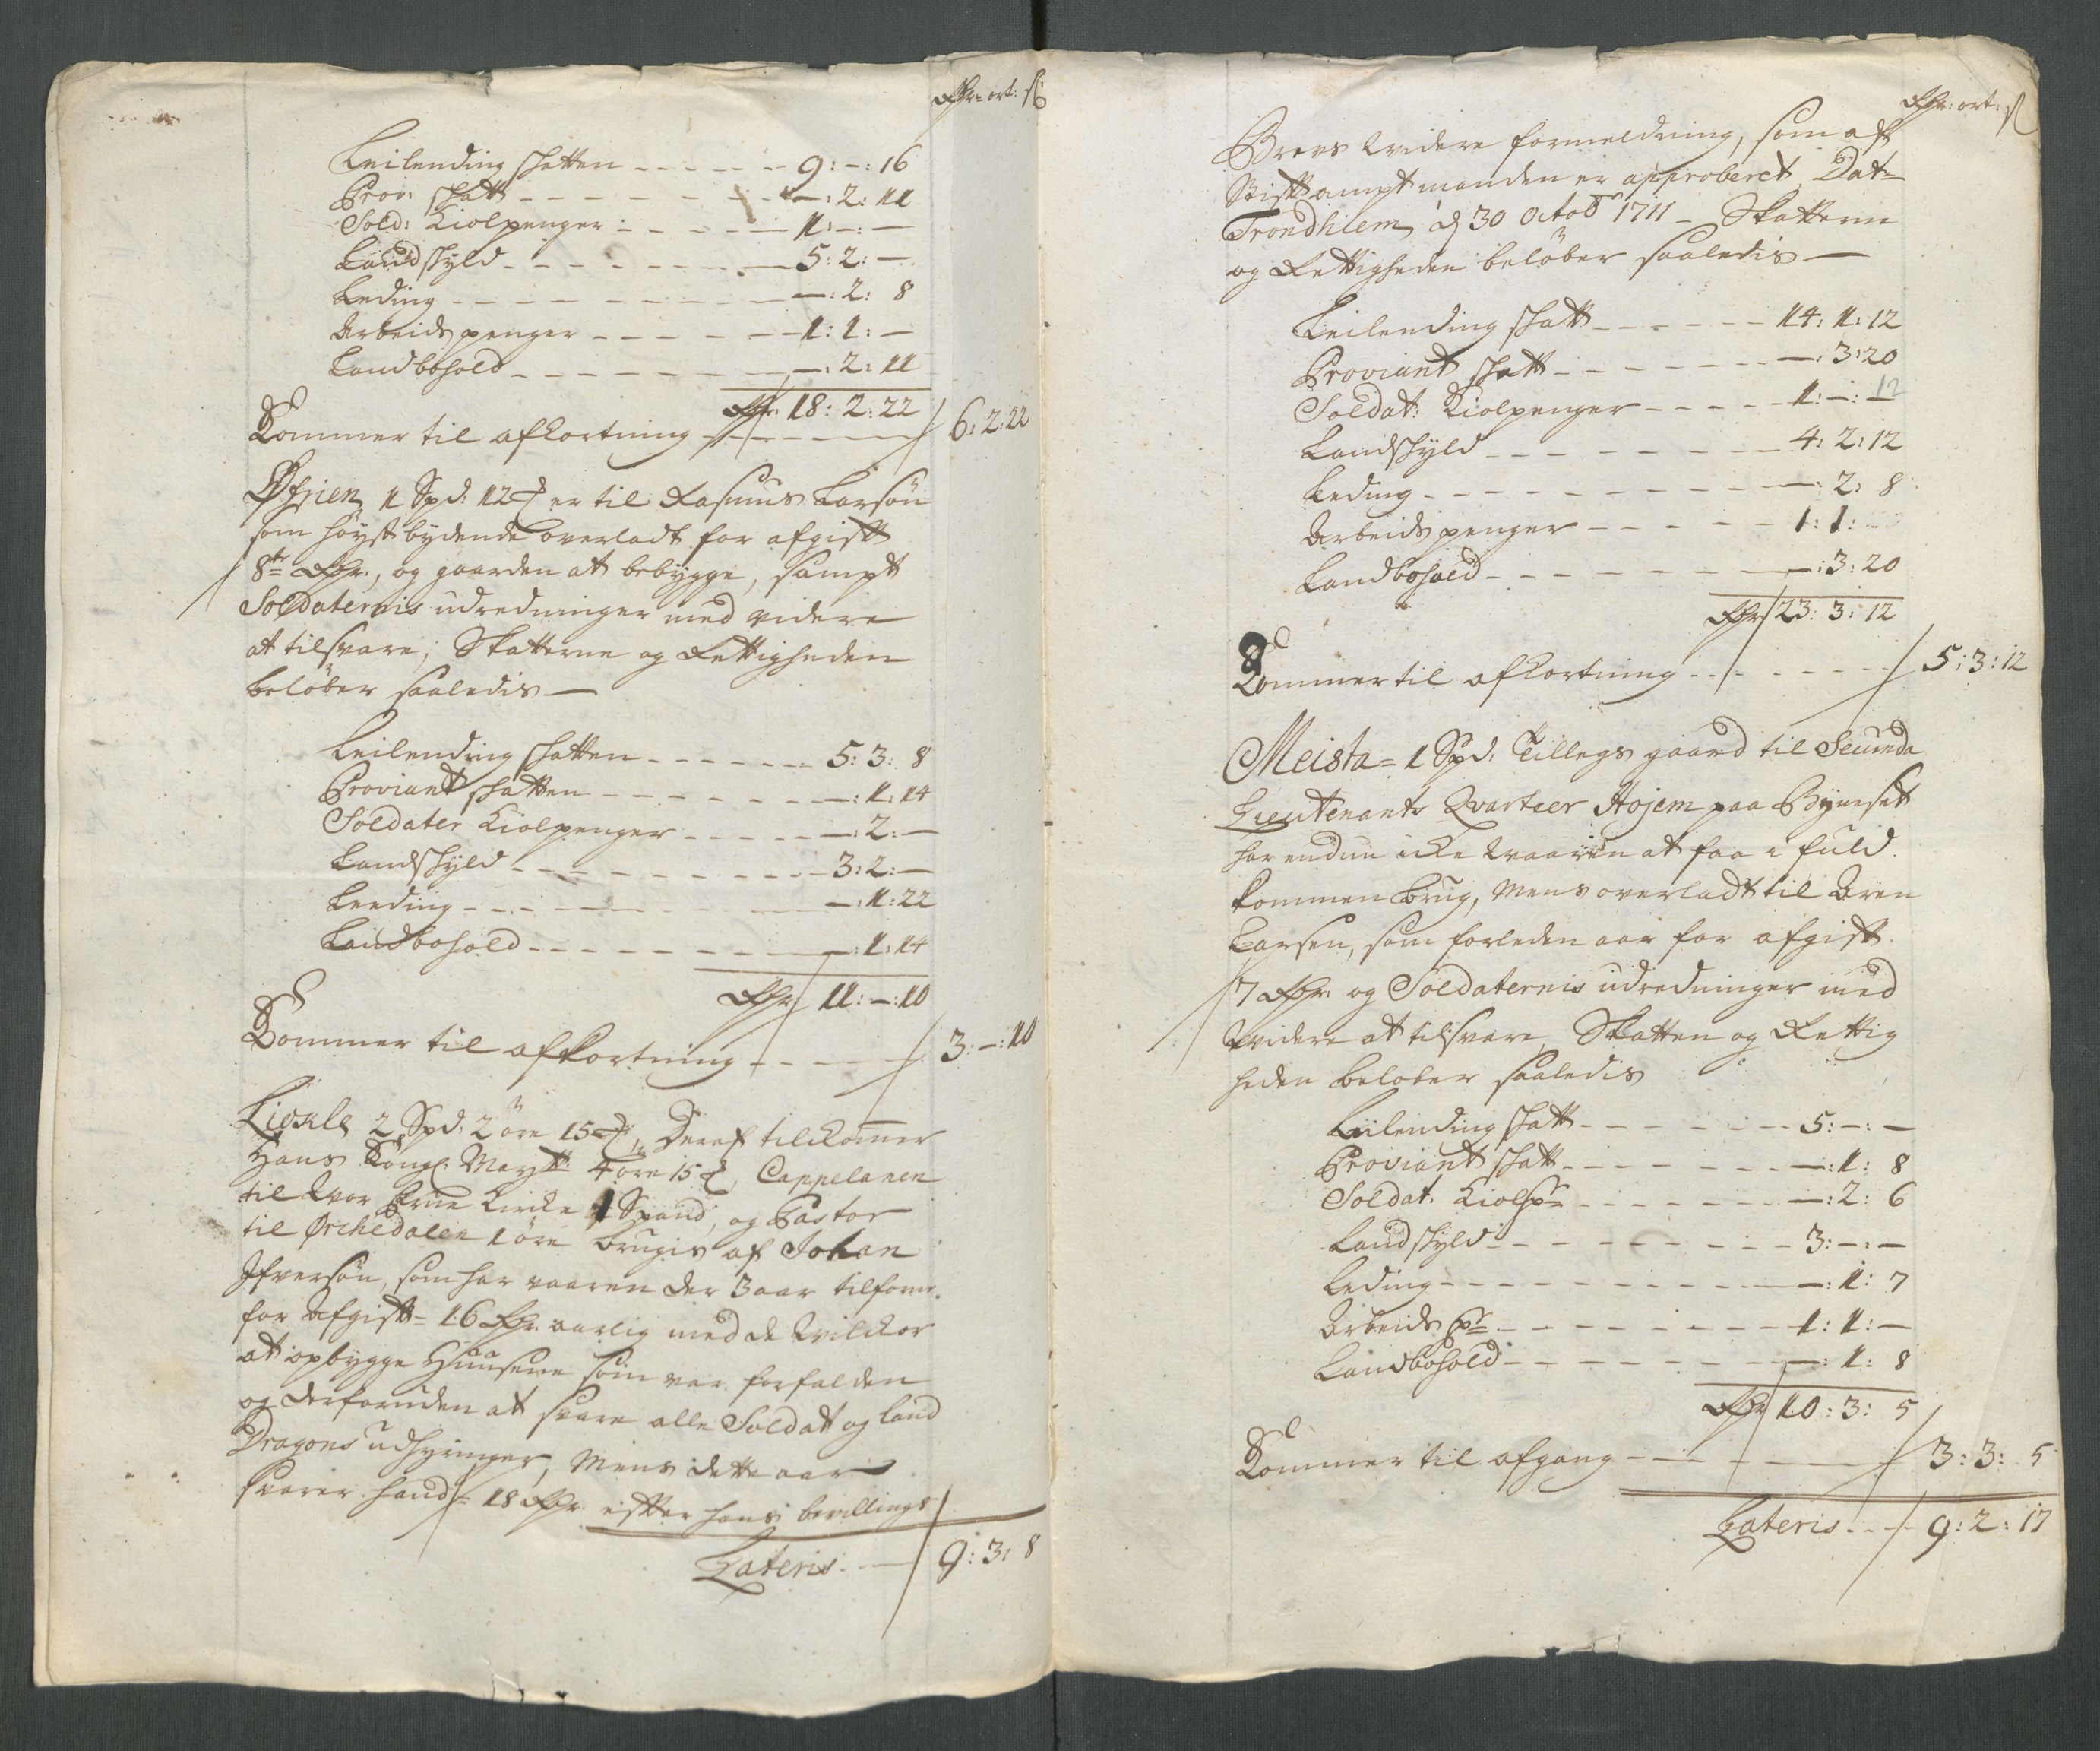 Rdr: ort: ß
Leilending skatten - - - - - 9: -: 16
Prov: skatt - - - - - - - -: 2: 11
Sold: Kiolpenger - - - - 1: -: -
Landskyld - - - - - - - 5: 2: -
Leding - - - - - - - - -: 2: 8
Arbeids penger - - - - - 1: 1: -
Landbohold - - - - - - - -: 2: 11
Rdr 18: 2: 22
Kommer til afkortning - - - - 6: 2: 22
Øfsien 1 Spd: 12 er til Rasmus Larsøn
som høystbydende overladt for afgift
8te Rdr, og gaarden at bebygge, sampt
Soldaternis udredninger med videre
at tilsvare, Skatterne og Rettigheden
beløber saaledis -
Leilending skatten - - - - - 5: 3: 8
Proviant skatten - - - - - - -: 1: 14
Soldater Kiolpenger - - - - -: 2: -
Landskyld - - - - - - - - 3: 2: -
Leeding - - - - -: 1: 22
Landbohold - - - - - - - -: 1: 14
Rdr 11: -: 10
Kommer til afkortning - - - - 3: -: 10
2 Spd: 2 øre 15, Deraf tilkommer
Hans Kongl: Maytt: 4 øre 15, Cappelanen
til Vor Frue Kircke 1 Spand, og Pastor
til Ørchedalen 1 øre brugis af Johan
Ifversøn, som har vaaren der 3 aar tilforn.
for Afgift = 16 Rdr aarlig med de Vilckor
at opbygge Huusene som var forfalden
og derforuden at svare alle Soldat og Land
Dragons udstyringer, Mens dette aar
svarer hand = 18 Rdr efter hans bevillings
Lateris - - - 9: 3: 8
Rdr: ort: ß
Brevs Videre formeldning, som af
Stiftamptmanden er approberet Dat=
Trondhiem d 30 Octobr 1711 - Skatterne
og Rettigheden beløber saaledis -
Leilending skatt - - - - - 14: 1: 12
Proviant skatt - - - - - - -: 3: 20
Soldat: Kiolpenger - - - - 1: -: 12
Landskyld - - - - - - - 4: 2: 12
Leding - - - - - - - - -: 2: 8
Arbeids penger - - - - - 1: 1:
Landbohold - - - - - - - -: 3: 20
Rdr 23: 3: 12
Kommer til afkortning - - - - - 5: 3: 12
Meista = 1 Spd: Tillegs gaard til Secunda
Lieutenants Qvarteer Hojem paa Bynesset
har endnu icke Vaaren at faa i fuld
kommen brug, Mens overladt til Aren
Larsen, som forleden aar for afgift
7 Rdr og Soldaternis udredninger med
Videre at tilsvare, Skatten og Rettig
heden beløber saaledis
Leilending skatt - - - - - 5: -: -
Proviant skatt - - - - - - -: 1: 8
Soldat. Kiolpr - - - - - - -: 2: 6
Landskyld - - - - - - - - 3: -: -
Leding - - - - - - - - - -: 1: 7
Arbeids pr - - - - - - - 1: 1: -
Landbohold - - - - - - - -: 1: 8
Rdr 10: 3: 5
Kommer til afgang - - - - 3: 3: 5
Lateris - - - 9: 2: 17